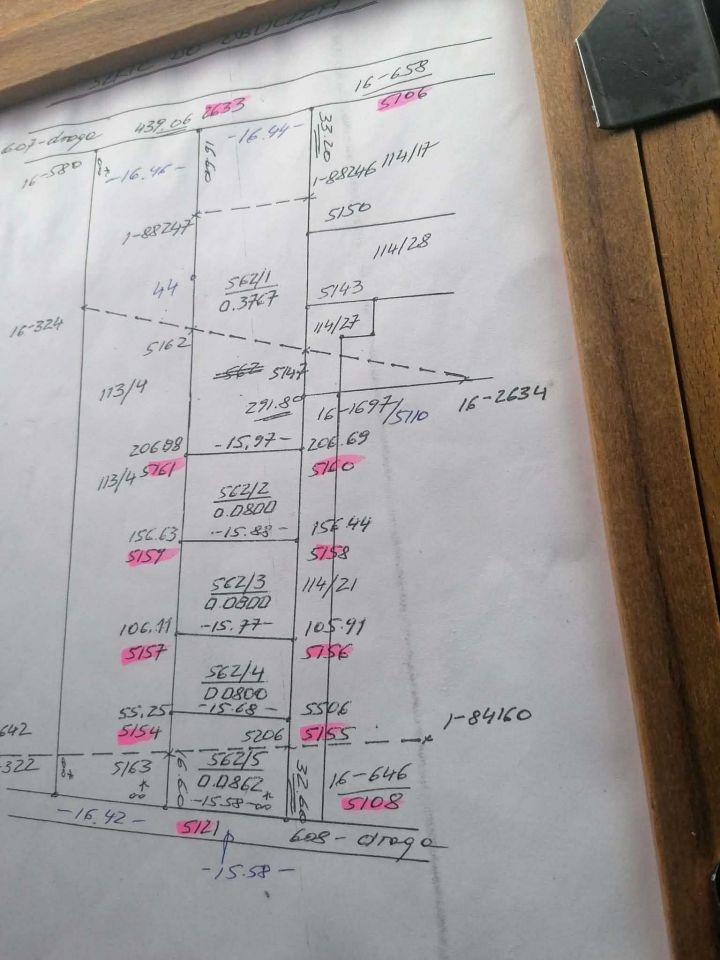 SZKIC DO OBLICZEŃ
16-658
5106
607-droga
439.06 2633
-16.44-
33.20
16-580
-16.46-
16.60
1-88246 114/17
1-88247
5150
114/28
44
562/1
0.3767
5143
16-324
114/27
5162
562
5147
113/4
291.80
16-1697/5110
16-2634
206.88
-15,97-
206.69
113/4 5161
5160
562/2
0.0800
156.63
-15.88-
156.44
5159
5158
562/3
0.0800
114/21
106.11
-15.77-
105.91
5157
5156
562/4
0.0800
55.25
-15.68-
5506
5154
5206
5155
1-84160
642
322
5163
562/5
0.0862
16-646
5108
16.60
-15.58-
32.60
-16.42-
5121
608-droga
-15.58-